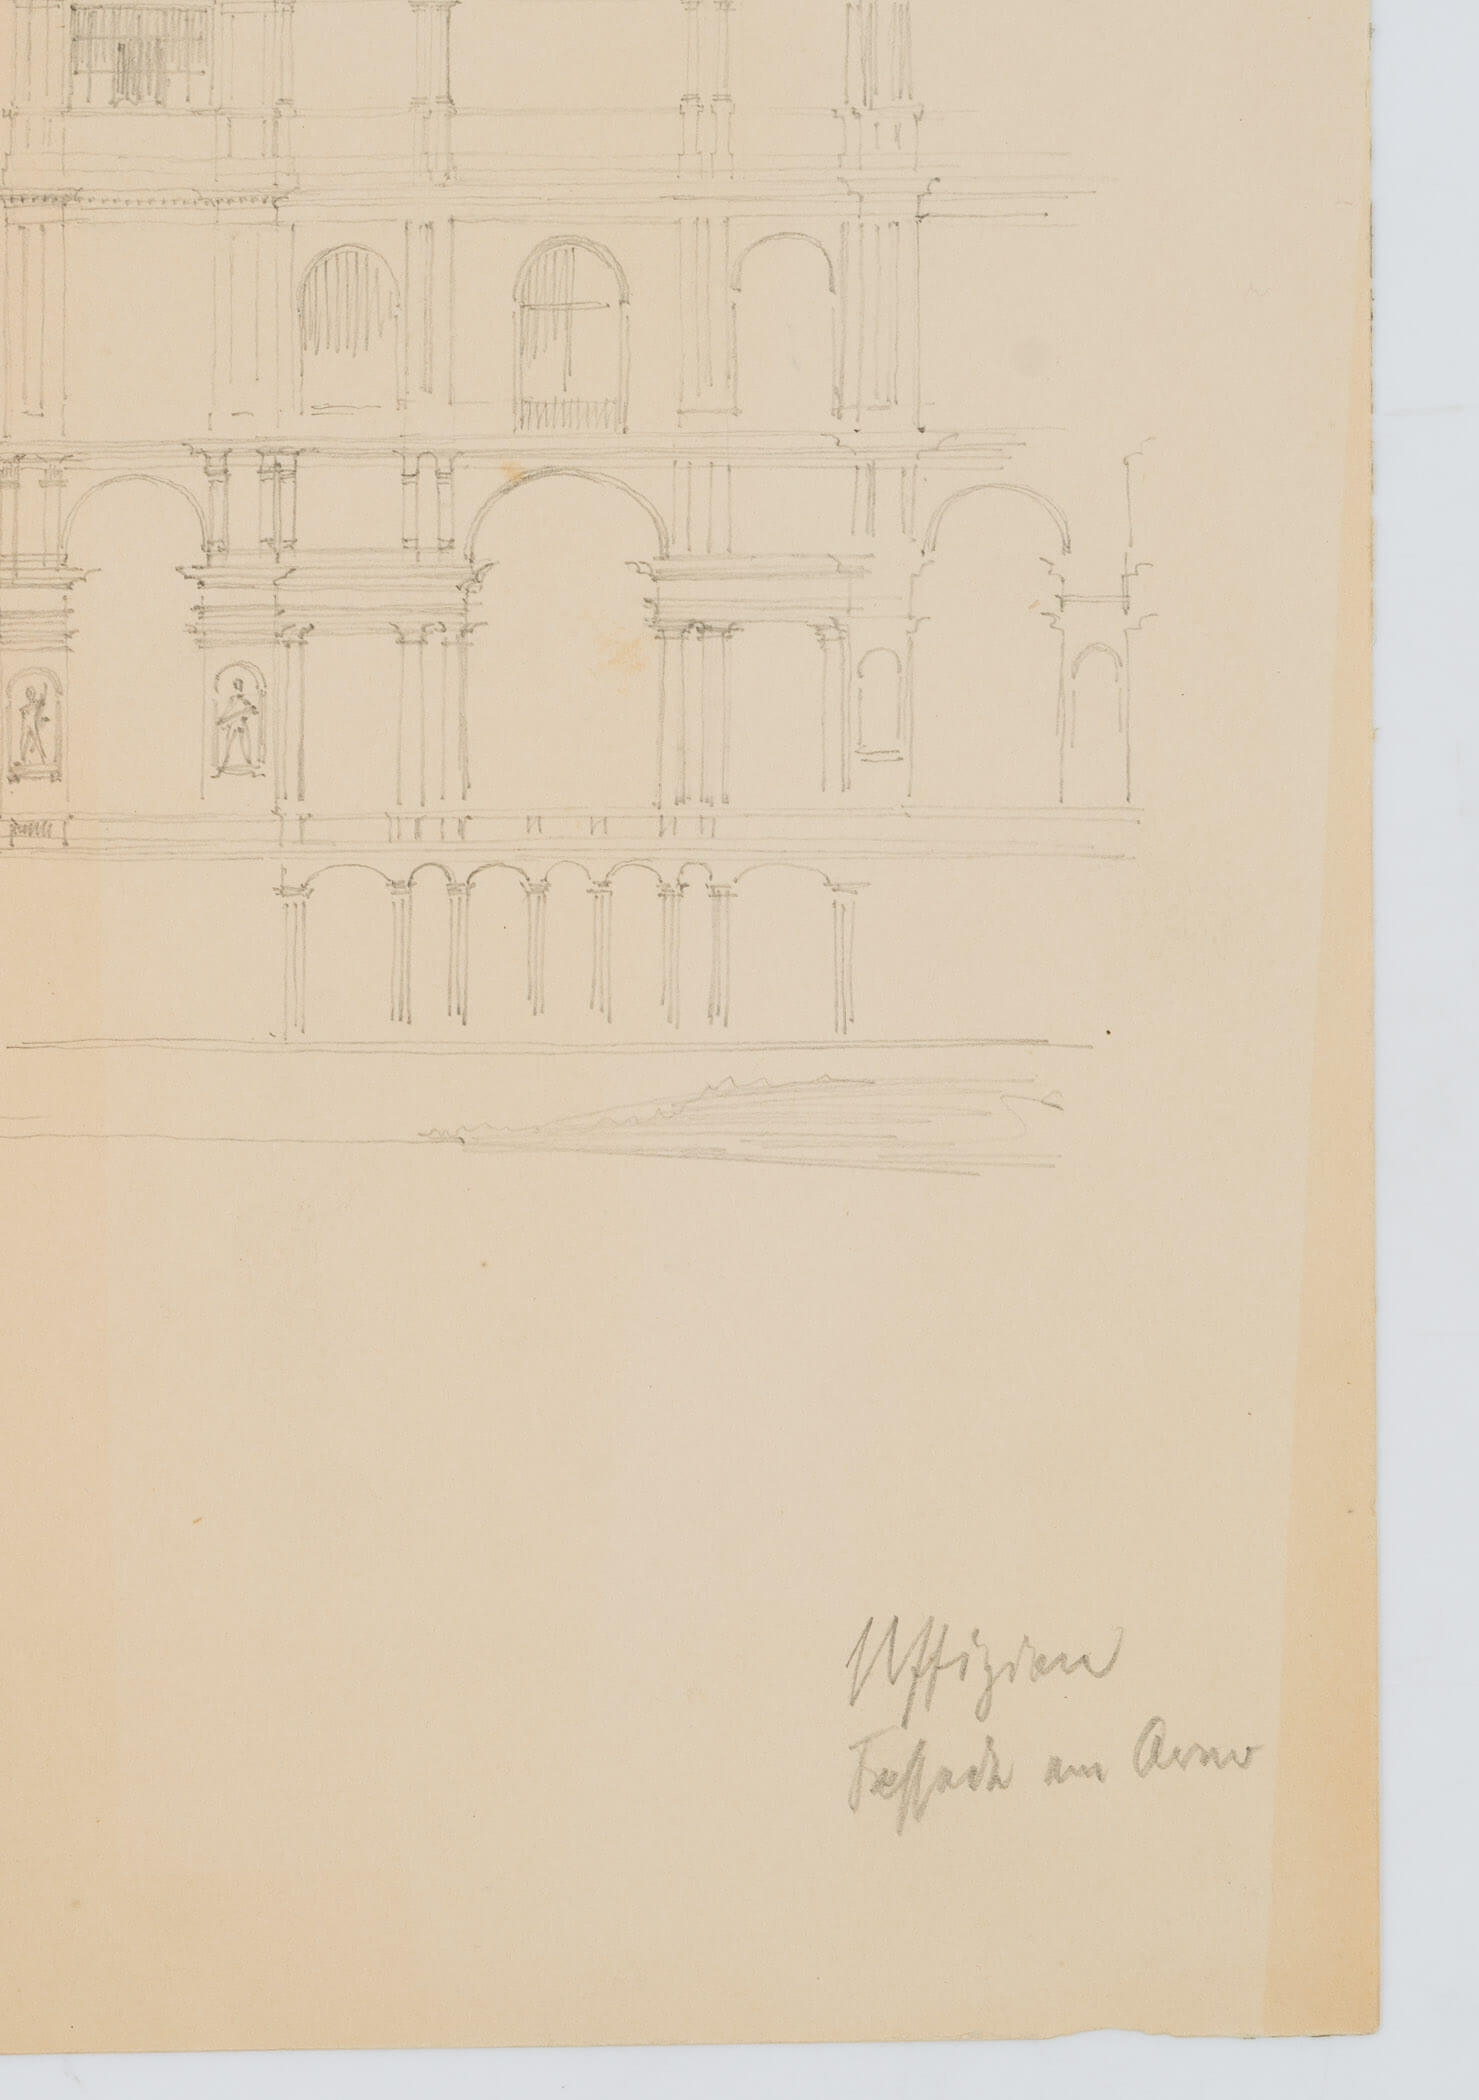 Uffizien
Fassade am Arno